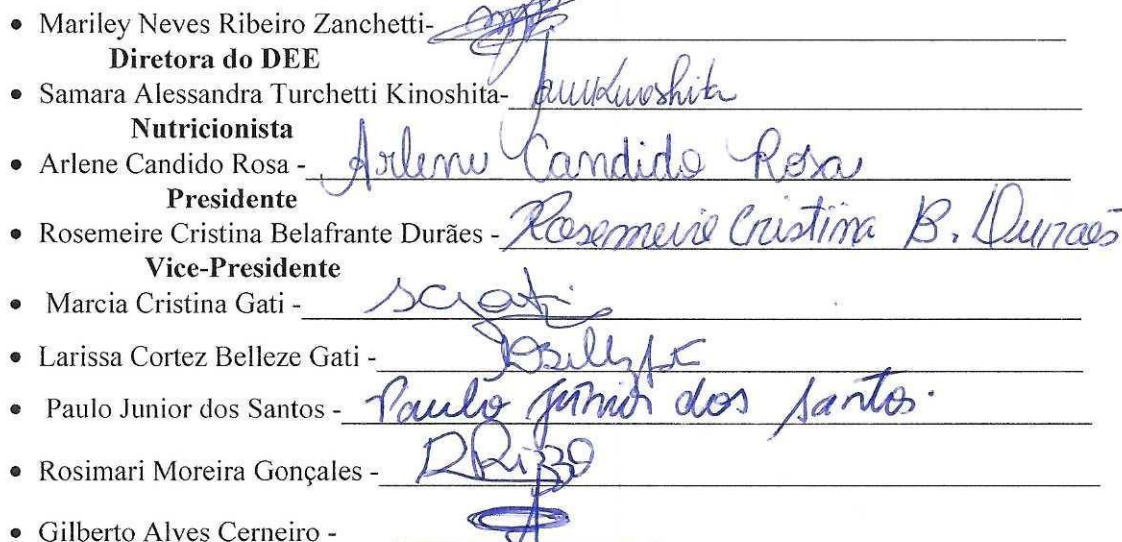 • Mariley Neves Ribeiro Zanchetti-
Diretora do DEE
• Samara Alessandra Turchetti Kinoshita-
Nutricionista
• Arlene Candido Rosa - Arlene Candido Rosa
Presidente
• Rosemeire Cristina Belafrante Durães - Rosemeire Cristina B. Durães
Vice-Presidente
• Marcia Cristina Gati -
• Larissa Cortez Belleze Gati -
• Paulo Junior dos Santos - Paulo Júnior dos Santos.
• Rosimari Moreira Gonçales -
• Gilberto Alves Cerneiro -